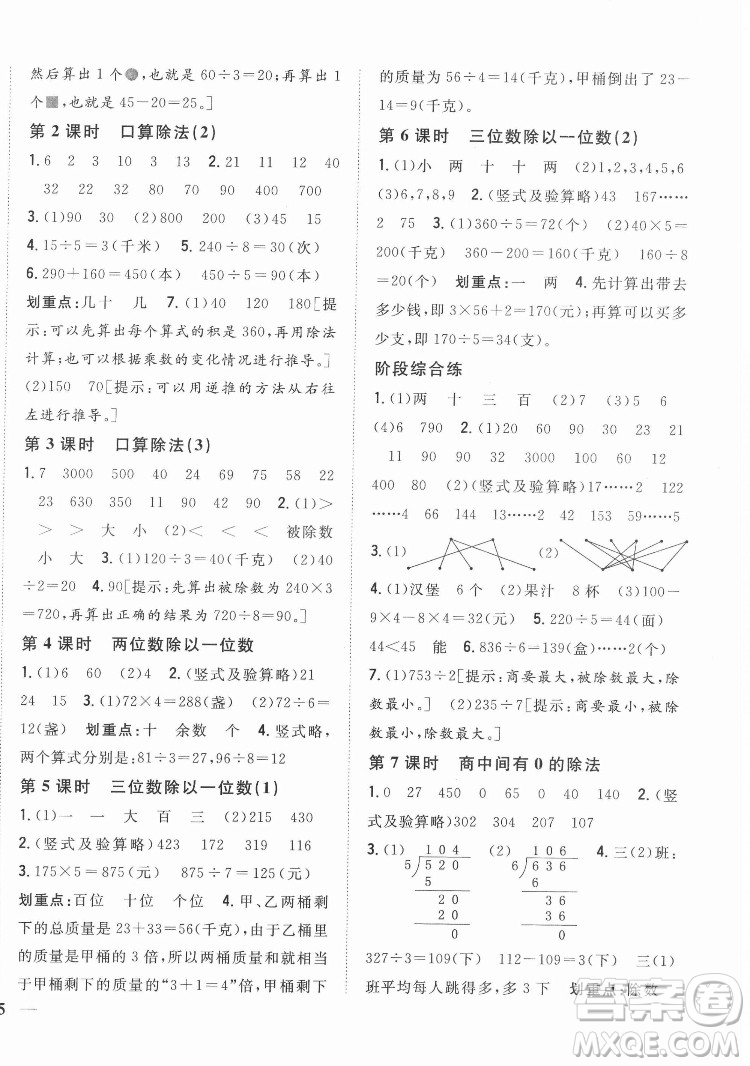 然后算出 1 个●,也就是 60÷3=20;再算出 1
个■,也就是 45-20=25。]
第 2 课时 口算除法(2)
1. 6 2 3 10 3 13 2. 21 11 12 40
32 32 22 80 70 90 400 700
3. (1)90 30 (2)60 50 (3)45 15
4. 15÷5=3(千米) 5. 240÷8=30(次)
6. 290+160=450(本) 450÷5=90(本)
划重点:几十 几 7. (1)40 120 180[提
示:可以先算出每个算式的积是 360,再用除法
计算;也可以根据乘数的变化情况进行推导。]
(2)150 70[提示:可以用逆推的方法从右往
左进行推导。]
第 3 课时 口算除法(3)
1. 7 3000 500 40 24 69 75 58
23 630 350 11 90 42 90 2. (1)>
> > 大 小 (2)< < < 被除数
小 大 3. (1)120÷3=40(千克) (2)40
÷2=20 4. 90[提示:先算出被除数为 240×3
=720,再算出正确的结果为 720÷8=90。]
第 4 课时 两位数除以一位数
1. (1)6 60 (2)4 2. (竖式及验算略)21
24 15 3. (1)72×4=288(盏) (2)72÷6=
12(盏) 划重点:十 余数 个 4. 竖式略,
两个算式分别是:81÷3=27,96÷8=12
第 5 课时 三位数除以一位数(1)
1. (1)一 一 大 百 三 (2)215 430
2. (竖式及验算略)423 172 319 116
3. 175×5=875(元) 875÷7=125(元)
划重点:百位 十位 个位 4. 甲、乙两桶剩
下的总质量是 23+33=56(千克),因为乙桶里
的质量是甲桶的 3 倍,所以两桶的质量和就相当
于甲桶剩下的质量的“3+1=4”倍,甲桶剩下
5
的质量为 56÷4=14(千克),甲桶卖出了 23-
14=9(千克)。
第 6 课时 三位数除以一位数(2)
1. (1)小 两 十 十 两 (2)1,2,3,4,5,6
(3)6,7,8,9 2. (竖式及验算略)43 167……
2 75 3. (1)360÷5=72(个) (2)40×5=
200(千克) 360-200=160(千克) 160÷8
=20(个) 划重点:一 两 4. 先计算出带去
多少钱,即 3×56+2=170(元);再算可以买多
少支,即 170÷5=34(支)。
阶段综合练
1. (1)两 十 三 百 (2)7 (3)5 6
(4)6 790 2. (1)60 9 30 23 21
11 90 90 32 30 30 50 60
400 80 (2)(竖式及验算略)17……2 122
……4 218 106……2 42 153 59……5
3. (1) (2)
4. (1)汉堡 6 个 (2)果汁 8 杯 (3)10
×9×4-8×4=328(元) 5. 220÷5=44(面)
44<45 能 6. 836÷6=139(盒)……2(块)
7. (1)753÷2[提示:商要最大,被除数最大,除
数最小。] (2)235÷7[提示:商要最小,被除
数最小,除数最大。]
第 7 课时 商中间有 0 的除法
1. 0 27 450 0 65 0 40 20 2. (竖
式及验算略)302 304 207 107
3. (1) 104 (2) 106 4. 三(2)班:
5 520 6 636
5 6
20 36
20 36
0 0
327÷3=109(下) 109<112 三(1)
班平均每人跳得多,多 3 下 划重点:除数
答案卷
MXQE.COM